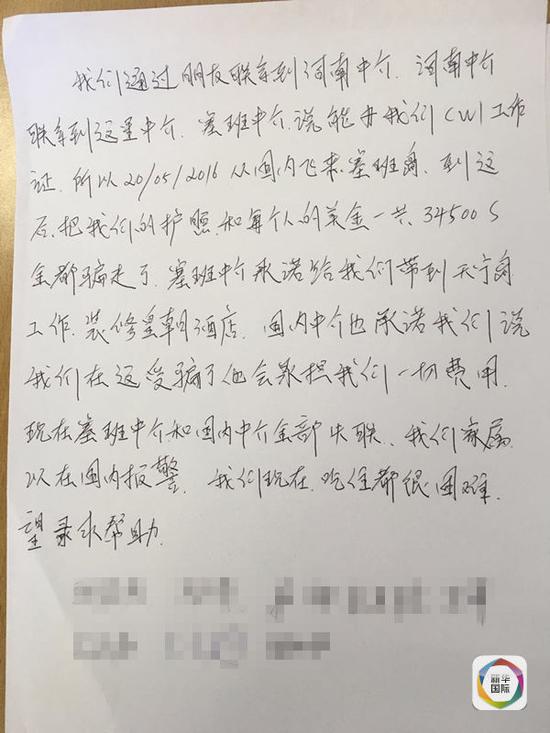 我们通过朋友联系到河南中介. 河南中介
联系到这里中介. 塞班中介.说能办我们CW1工作
证.所以20/05/2016从国内飞来塞班岛.到这
后.把我们的护照.和每个人的美金一共.34500$
全都骗走了.塞班中介承诺给我们带到天宁岛
工作.装修皇朝酒店. 国内中介也承诺我们说
我们在这受骗了他会承担我们一切费用.
现在塞班中介和国内中介全部失联.我们家属
以在国内报警. 我们现在.吃住都很困难.
望求帮助.
新华
国际